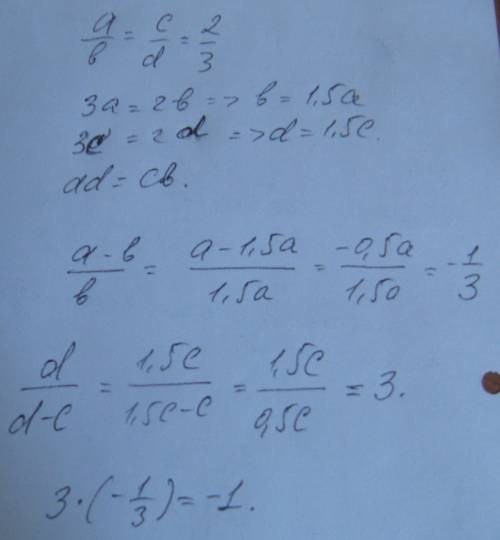 a/b = c/d = 2/3
3a = 2b => b = 1,5a
3c = 2d => d = 1,5c.
ad = cb.
(a - b)/b = (a - 1,5a)/1,5a = -0,5a/1,5a = -1/3
d/(d-c) = 1,5c/(1,5c-c) = 1,5c/0,5c = 3.
3·(-1/3) = -1.